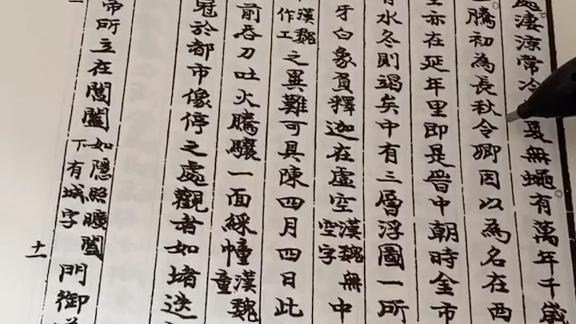 處淒涼常冷
夏無蠅有萬年千歲
騰初為長秋令卿因以為名在西
亦在延年里即是晉中朝時金市
有水冬則竭矣中有三層浮圖一所
牙白象負釋迦在虛空漢魏無空字中
漢魏作工之異難可具陳四月四日此
前吞刀吐火騰驤一面綵幢漢魏童
冠於都市像停之處觀者如堵迭
帝所立在閶闔如隱照曠闔下有城字門御
十一